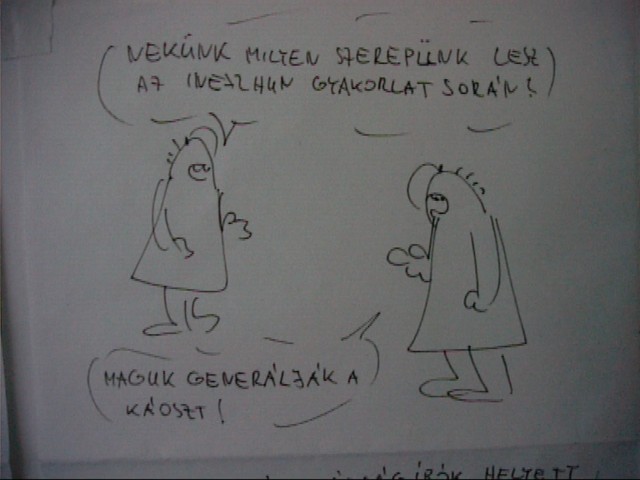 NEKÜNK MILYEN SZEREPÜNK LESZ
AZ INESZHUN GYAKORLAT SORÁN?
MAGUK GENERÁLJÁK A
KÁOSZT!
HELYETT